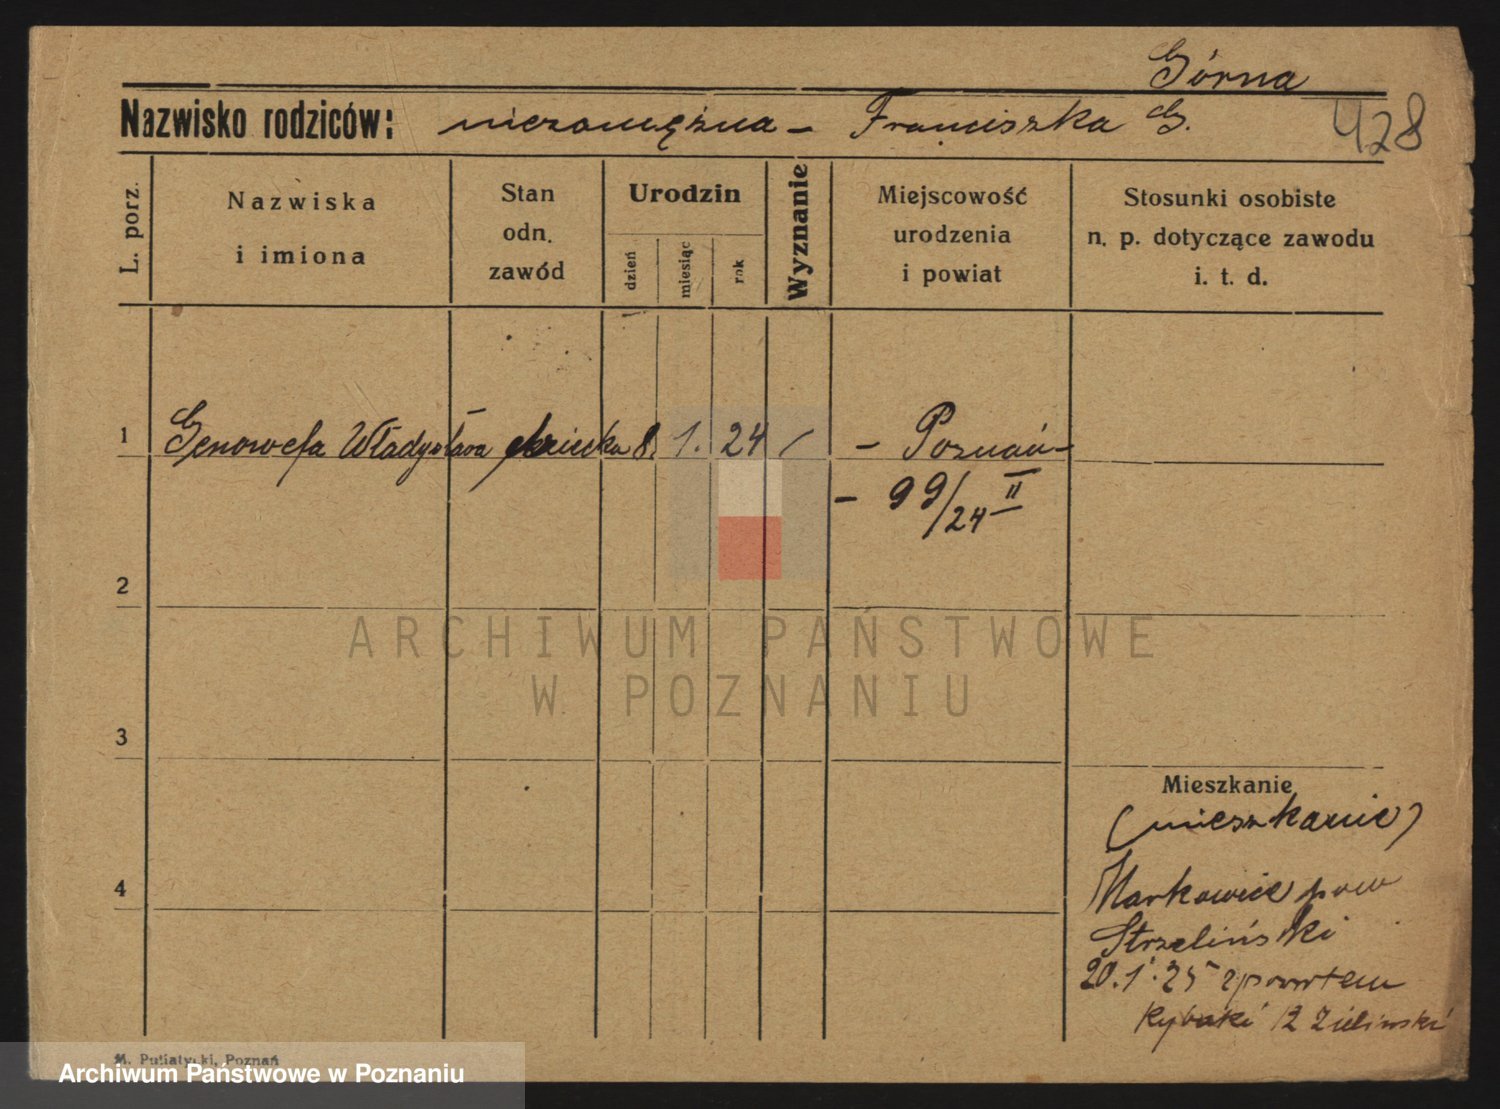 Górna
Nazwisko rodziców: niezamężna - Franciszka G.
428
L. porz.
Nazwiska
i imiona
Stan
odn.
zawód
Urodzin
dzień
miesiąc
rok
Wyznanie
Miejscowość
urodzenia
i powiat
Stosunki osobiste
n. p. dotyczące zawodu
i. t. d.
1 Genowefa Władysława 8. 1. 24 / - Poznań -
- 99/24 II
2
3
4
Mieszkanie
(mieszkanie)
Markowice pow
Strzeliński
20.1.25 z powrotem
Rybaki 12 Zieliński
M. Putiatycki, Poznań
ARCHIWUM PAŃSTWOWE
W POZNANIU
Archiwum Państwowe w Poznaniu